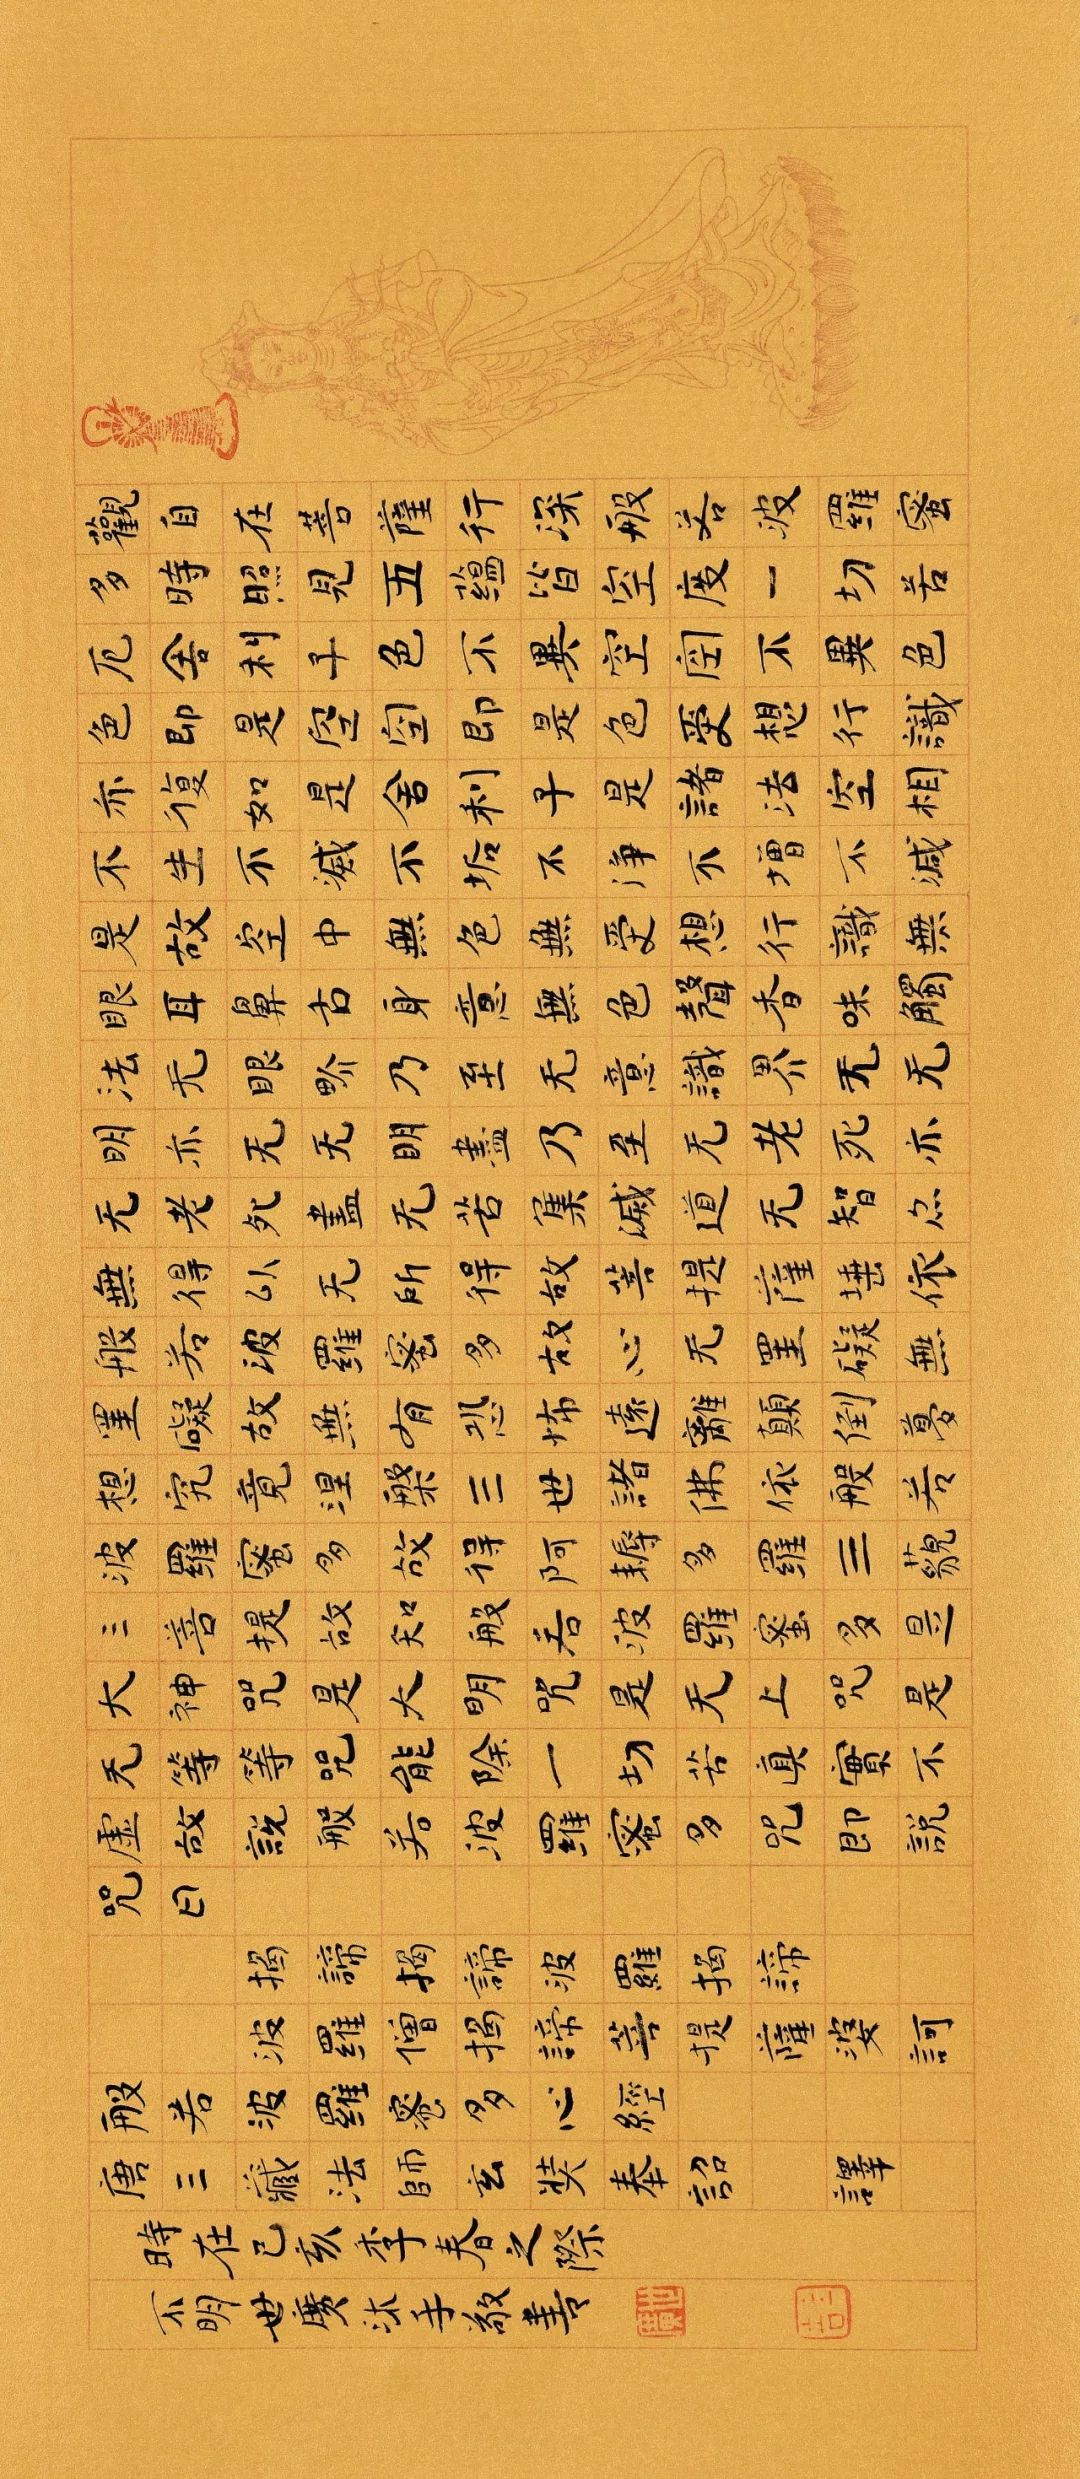 觀自在菩薩行深般若波羅蜜
多時照見五蘊皆空度一切苦
厄舍利子色不異空空不異色
色即是空空即是色受想行識
亦復如是舍利子是諸法空相
不生不滅不垢不淨不增不減
是故空中無色無受想行識無
眼耳鼻舌身意無色聲香味觸
法无眼界乃至无意識界无无
明亦无无明盡乃至无老死亦
无老死盡无苦集滅道无智亦
無得以无所得故菩提薩埵依
般若波羅蜜多故心无罣礙無
罣礙故無有恐怖遠離顛倒夢
想究竟涅槃三世諸佛依般若
波羅蜜多故得阿耨多羅三藐
三菩提故知般若波羅蜜多是
大神咒是大明咒是无上咒是
无等等咒能除一切苦真實不
虛故說般若波羅蜜多咒即說
咒曰
揭諦揭諦波羅揭諦
波羅僧揭諦菩提薩婆訶
般若波羅蜜多心經
唐三藏法師玄奘奉詔譯
時在己亥季春之際
不明世廣沐手敬書